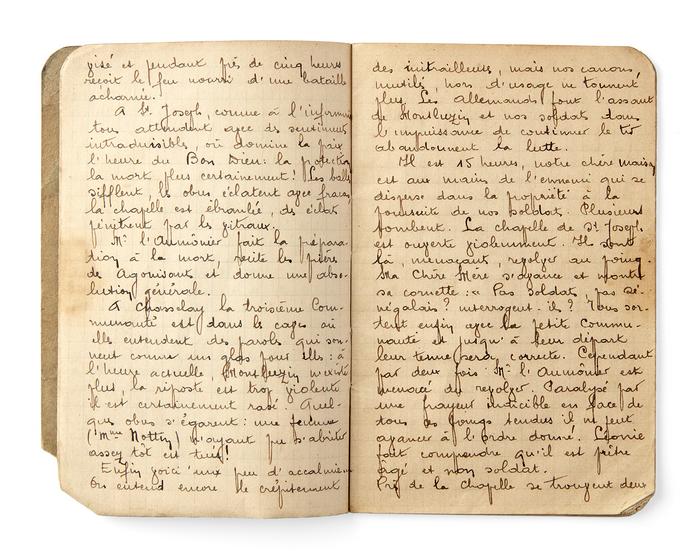 gisé et pendant près de cinq heures
reçoit le feu nourri d'une bataille
acharnée.
A St Joseph, comme à l'infirmerie
tous attendent avec des sentiments
intraduisibles, où domine la paix
l'heure du Bon Dieu : la protection
la mort plus certainement ! Les balles
sifflent, les obus éclatent avec fracas,
la chapelle est ébranlée, des éclats
pénètrent par les vitraux.
Mr l'Aumônier fait la prépara-
tion à la mort, récite les prières
des Agonisants et donne une abso-
lution générale.
A Chasselay la troisième Com-
munauté est dans les caves où
elles entendent des paroles qui son-
nent comme un glas pour elles : à
l'heure actuelle, Montluzin n'existe
plus, la riposte est trop violente
il est certainement rasé. Quel-
ques obus s'égarent : une femme
(Mme Nottin) n'ayant pu s'abriter
assez tôt est tuée !
Enfin voici un peu d'accalmie
On entend encore le crépitement
des mitrailleuses, mais nos canons,
mutilés, hors d'usage ne tonnent
plus. Les Allemands font l'assaut
de Montluzin et nos soldats dans
l'impuissance de continuer le tir
abandonnent la lutte.
Il est 15 heures, notre chère maison
est aux mains de l'ennemi qui se
disperse dans la propriété à la
poursuite de nos soldats. Plusieurs
tombent. La chapelle de St Joseph
est ouverte violemment. Ils sont
là, menaçants, revolver au poing.
Ma Chère Mère s'avance et montre
sa cornette : « Pas soldats, pas Sé-
négalais ? interrogent-ils ? Nous sor-
tent enfin avec la petite Commu-
nauté et jusqu'à leur départ
leur tenue sera correcte. Cependant
par deux fois Mr l'Aumônier est
menacé du revolver. Paralysé par
une frayeur indicible en face de
tous ces poings tendus il ne peut
avancer à l'ordre donné. Léonie
fait comprendre qu'il est prêtre
âgé et non soldat.
Près de la Chapelle se trouvent deux